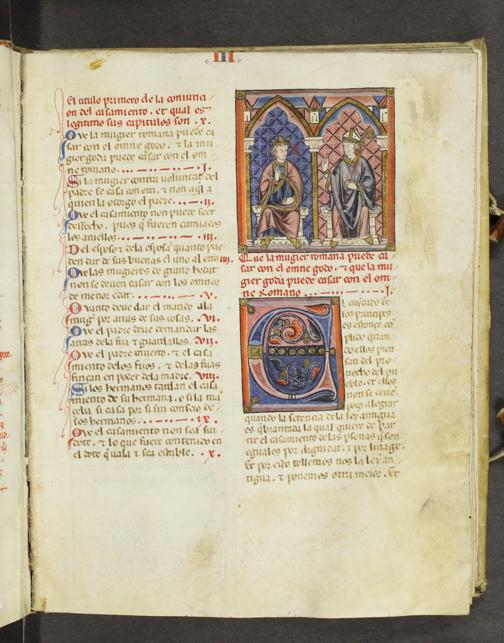 III
El titulo primero de la coniunc
ion del casamiento. et qual es
legitimo sus capitulos son .x.
Que la mugier romana puede ca
sar con el omne godo. & la mu
gier goda puede casar con el om
ne romano. I.
Si la mugier contra voluntat del
padre se casa con otri. & non a aquel a
quien la otorgo el padre. II.
Que el casamiento non puede seer
desfecho. pues que fueren camiados
los aniellos. III.
Del esposo & dela esposa quanto pue
den dar de sus buenas el uno al otro IIII.
Que las mugieres de grant hedat
non se deuen casar con los omnes
de menor edat. V.
Quanto deue dar el marido ala
mugier por arras de sus cosas. VI.
Que el padre deue demandar las
arras dela fija & guardallas. VII.
Que el padre muerto. & el casa
miento delos fijos. & delas fijas
fincan en poder dela madre. VIII.
Si los hermanos tardan el casa
miento de su hermana. o si la ma
ceba si casa por si sin conseio de
sos hermanos. IX.
Que el casamiento non sea sin
dote. & lo que fuere contenido en
el dote quala & sea estable. X.
Que la mugier romana puede ca
sar con el omne godo. & que la mu
gier goda puede casar con el om
ne Romano I.
El cuidado de
los principes
es estonce co
plido quan
do ellos pien
san del pro
uecho del pu
eblo. et ellos
non se deue
pora alegrar
quando la sentencia de la ley antigua
es quebrantada la qual quiere de par
tir el casamiento de las personas que son
eguales por dignitat. & por linage.
Et por esto tollemos nos la ley an
tigua. & ponemos otra meior. Et